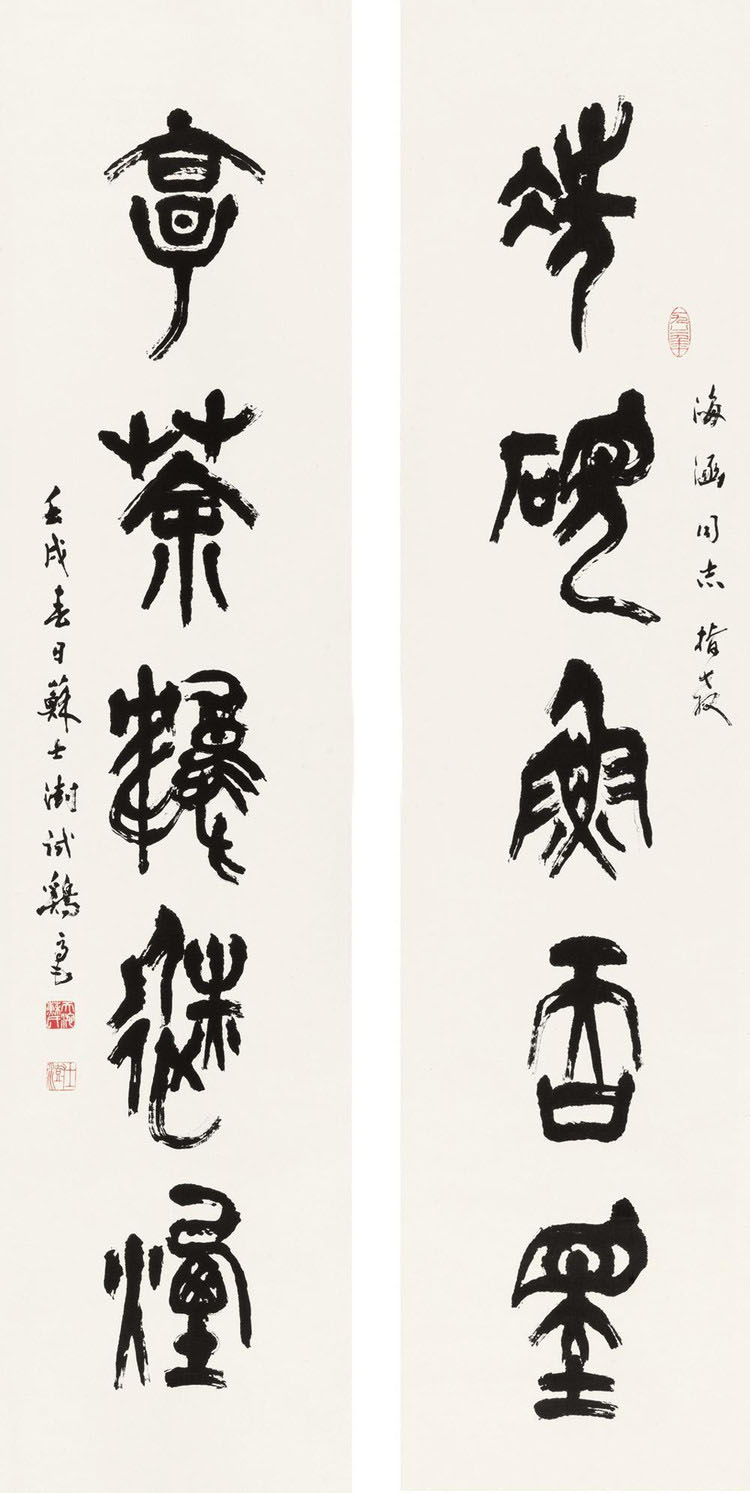 洗硯魚吞墨
海涵同志指教
亨茶鶴避煙
壬戌春日蘇士澍試鷄毫
士澍